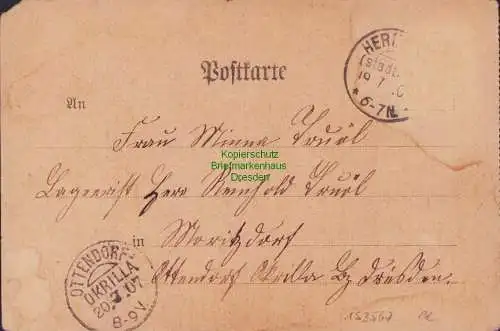 Postkarte
HER
(stadt
19 7
* 6-7N.
An
Frau Minna
Kopierschutz
Briefmarkenhaus
Dresden
Herr Reinhold
in
Moritzdorf
Ottendorf Okrilla Bz Dresden.
OTTENDORF-
OKRILLA
20 7 07
8-9V.
153567